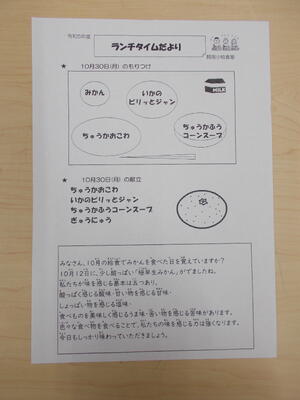 令和5年度
ランチタイムだより
★ 10月30日(月) のもりつけ
みかん
いかの
ピリッとジャン
MILK
ちゅうかおこわ
ちゅうかふう
コーンスープ
★ 10月30日(月) の献立
ちゅうかおこわ
いかのピリッとジャン
ちゅうかふうコーンスープ
ぎゅうにゅう
みなさん、10月の給食でみかんを食べた日を覚えていますか?
10月12日に、少し酸っぱい「極早生みかん」がでましたね。
私たちが味を感じる基本は五つあり、
酸っぱく感じる酸味・甘い物を感じる甘味・
しょっぱい物を感じる塩味・
食べものを美味しく感じるうま味・苦い物を感じる苦味があります。
色々な食べ物を食べることで、私たちの味を感じる力は強くなります。
今日もしっかり味わっていただきましょう。